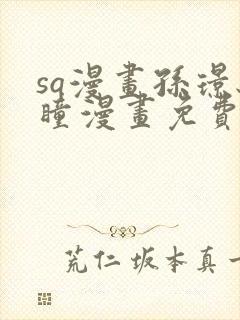 sq漫畫孫璟
瞳漫畫免費
荒仁 坂本真一